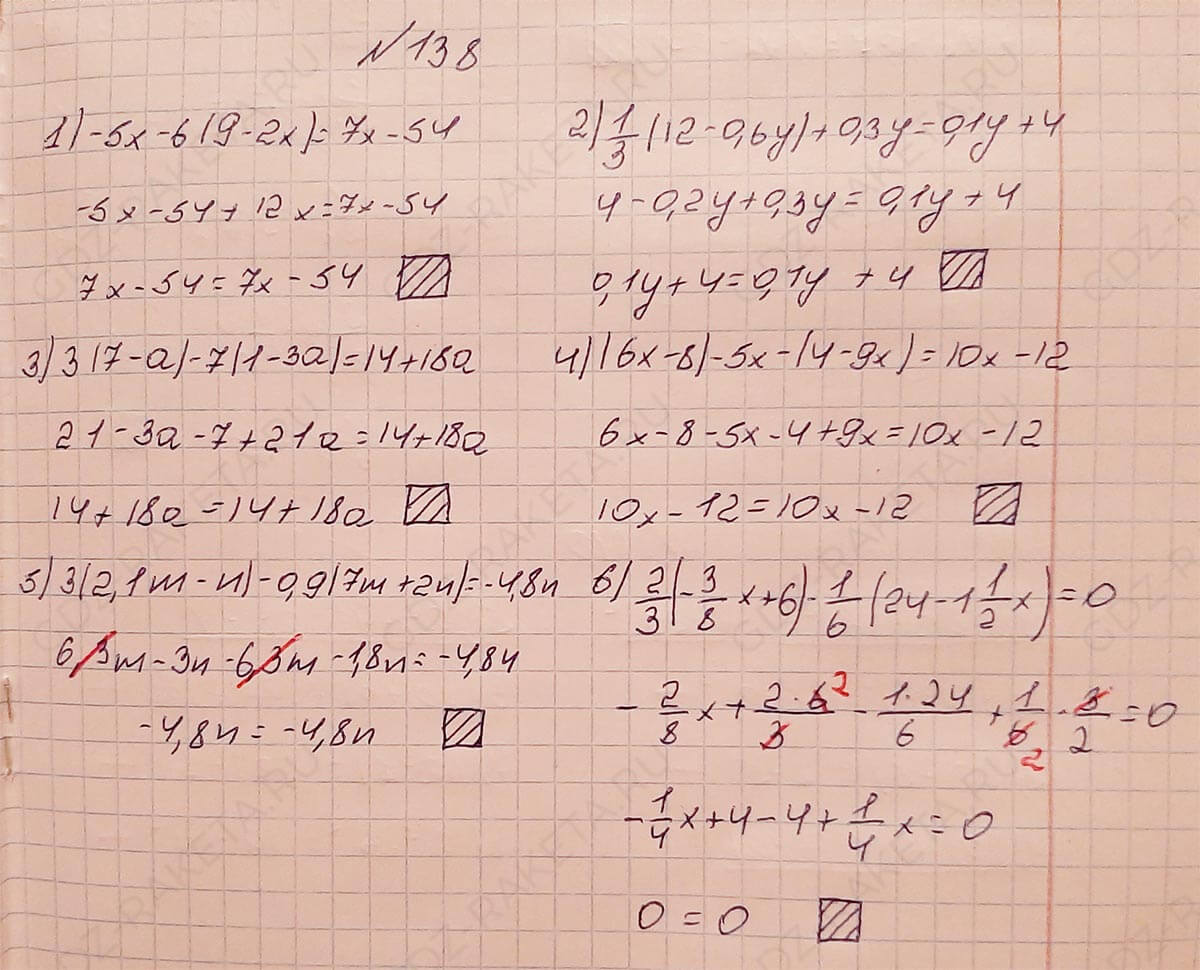 №138
1) -5x-6(9-2x)=7x-54
-5x-54+12x=7x-54
7x-54=7x-54
2) 1/3(12-0,6y)+0,3y=0,1y+4
4-0,2y+0,3y=0,1y+4
0,1y+4=0,1y+4
3) 3(7-a)-7(1-3a)=14+18a
21-3a-7+21a=14+18a
14+18a=14+18a
4) (6x-8)-5x-(4-9x)=10x-12
6x-8-5x-4+9x=10x-12
10x-12=10x-12
5) 3(2,1m-n)-0,9(7m+2n)=-4,8n
6,3m-3n-6,3m-1,8n=-4,84
-4,8n=-4,8n
6) 2/3(-3/8x+6)-1/6(24-1 1/2x)=0
-2/8x+2·6 2/3-1·24/6+1/6 2·3/2=0
-1/4x+4-4+1/4x=0
0=0
GDZ-RAKETA.RU